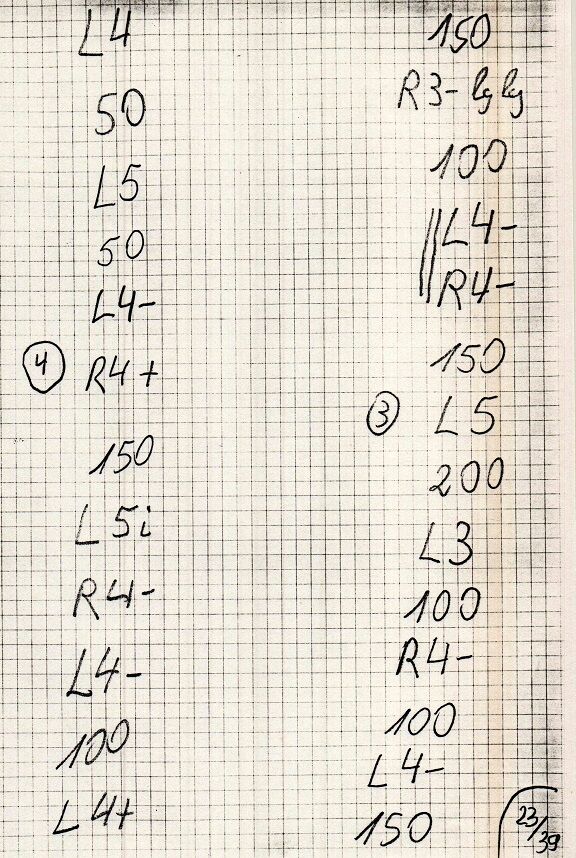 L4
50
L5
50
L4-
④ R4+
150
L5i
R4-
L4-
100
L4+
150
R3- lg lg
100
L4-
R4-
150
③ L5
200
L3
100
R4-
100
L4-
150
23/39